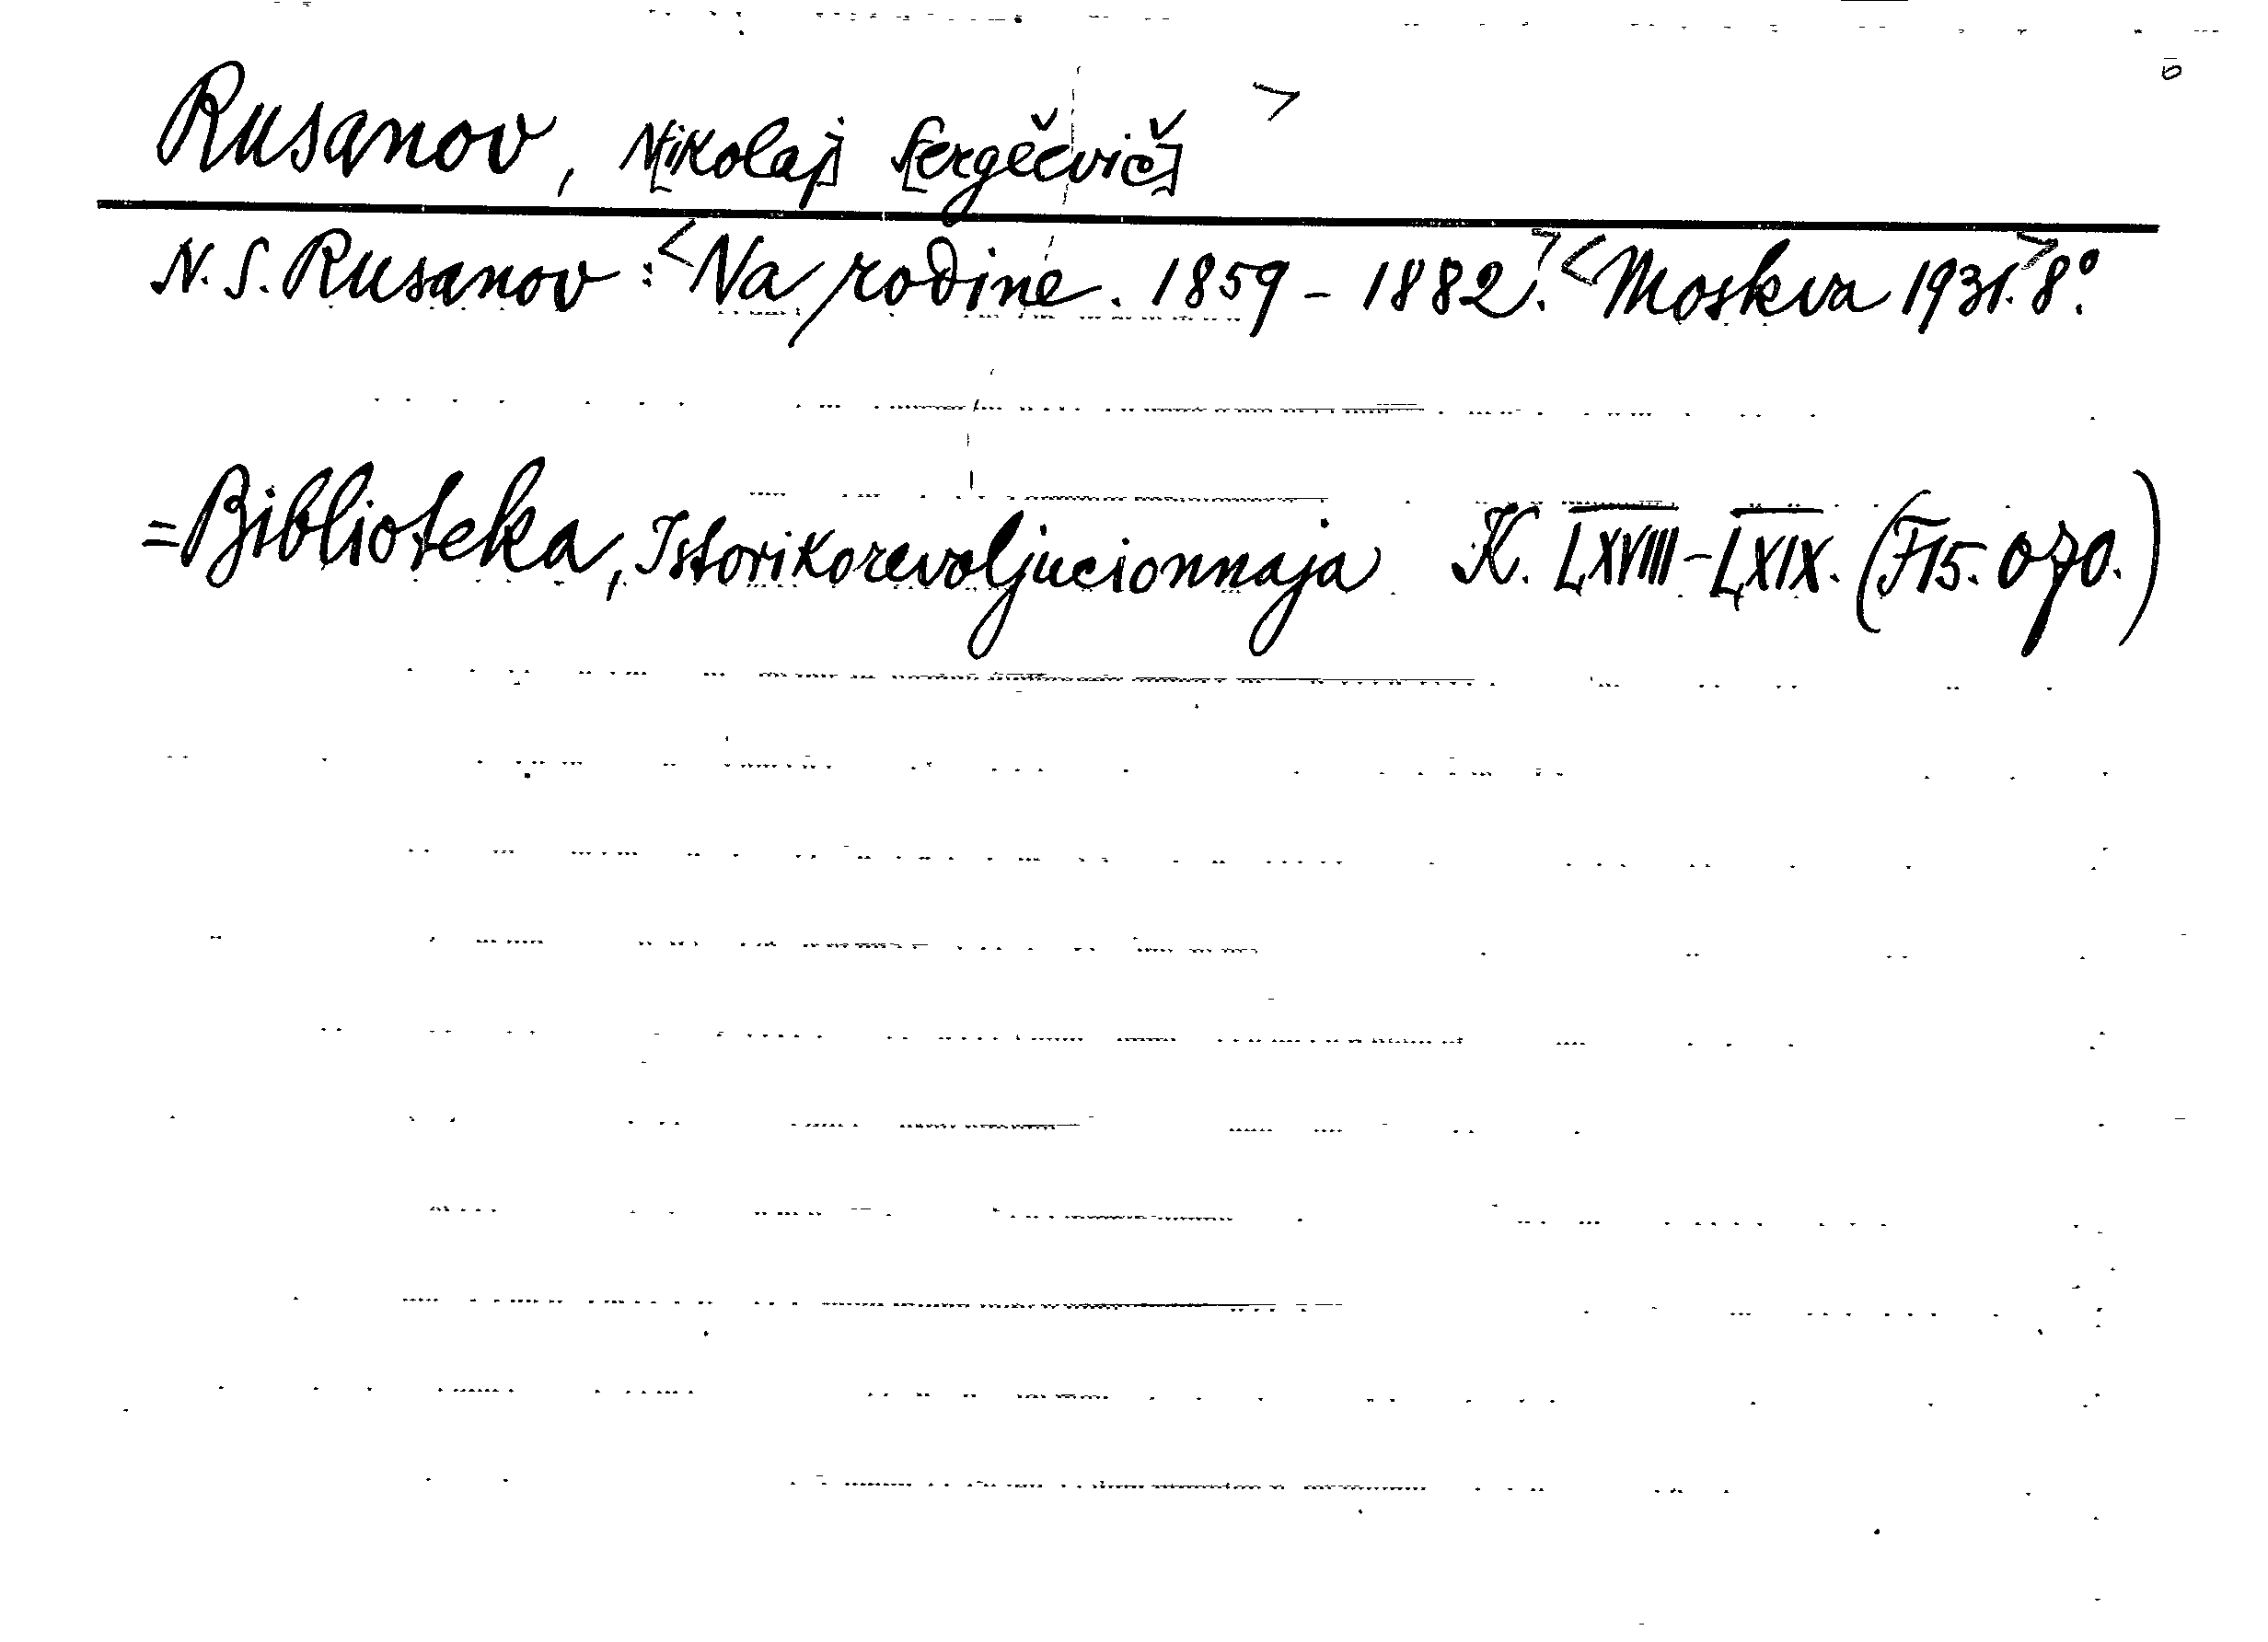 Rusanov, N[ikolaj] S[ergěevič] >
N. S. Rusanov: <Na rodine. 1859 - 1882.> <Moskva 1931.> 8°.
=Biblioteka, Istorikorevoljucionnaja K. LXVIII-LXIX. (F15.070.)